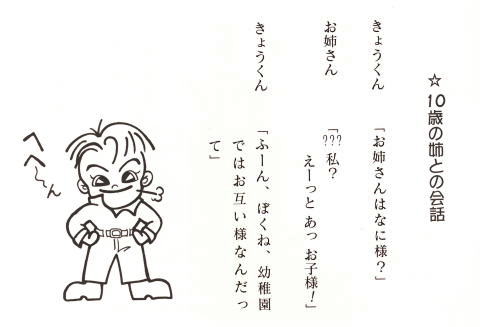 ☆10歳の姉との会話
きょうくん 「お姉さんはなに様？」
お姉さん 「??? 私？
えーっと あっ お子様！」
きょうくん 「ふーん、ぼくね、幼稚園
ではお互い様なんだっ
て」
へへ〜ん